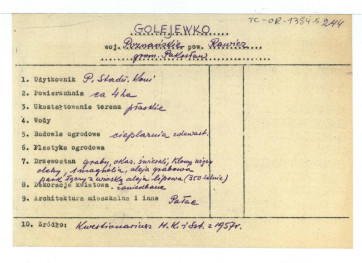 TC-OR-1384.5 244
GOLEJEWKO
woj. Poznańskie pow. Rawicz
grom. Pakosław
1. Użytkownik P. Stadn. Koni
2. Powierzchnia ca 4 ha
3. Ukształtowanie terenu płaskie
4. Wody
5. Budowle ogrodowe cieplarnia zdewast.
6. Plastyka ogrodowa
7. Drzewostan graby, okaz. świerki, klony
olchy, 1 magnolia, aleja grabowa
park łączy z wioską aleja lipowa (350 letnia)
8. Dekoracja kwiatowa. zaniedbane
9. Architektura mieszkalna i inne Pałac
10. Źródło: Kwestionariusz M.K. i Szt. z 1957r.